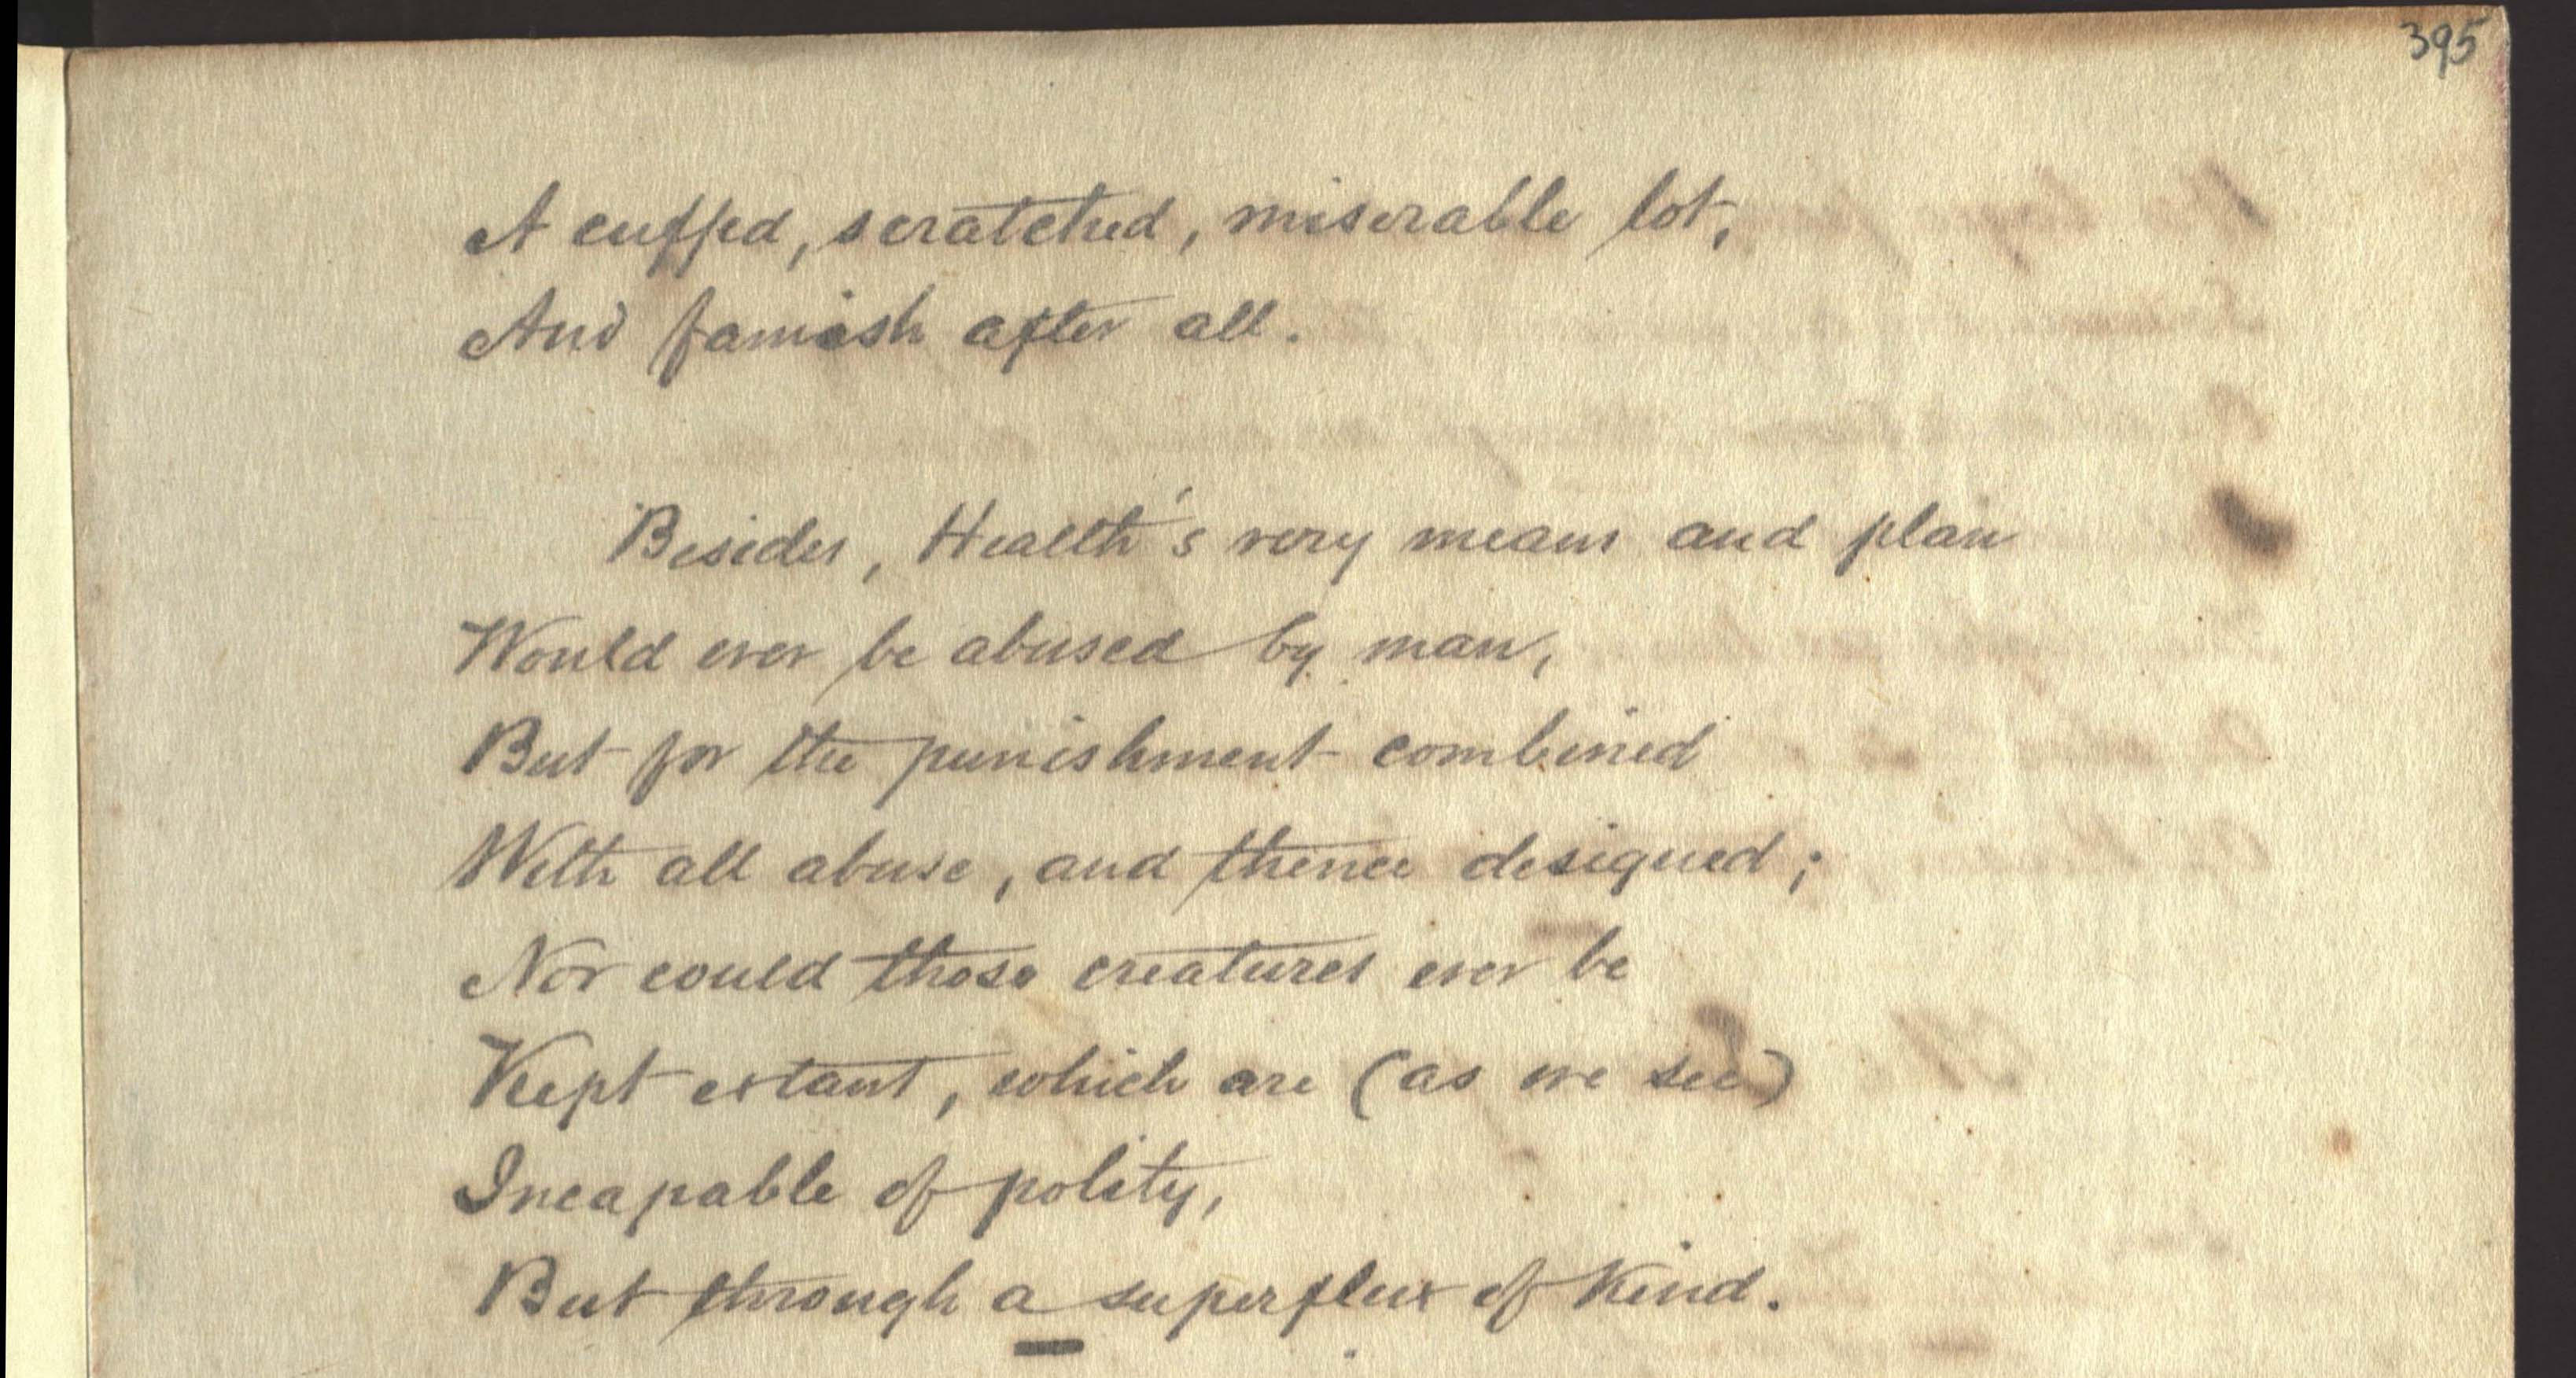 395
A cuffed, scratched, miserable lot,
And famish after all.
Besides, Health's very means and plan
Would ever be abused by man,
But for the punishment combined
With all abuse, and thence designed;
Nor could those creatures ever be
Kept extant, which are (as we see)
Incapable of polity,
But through a superflux of kind.